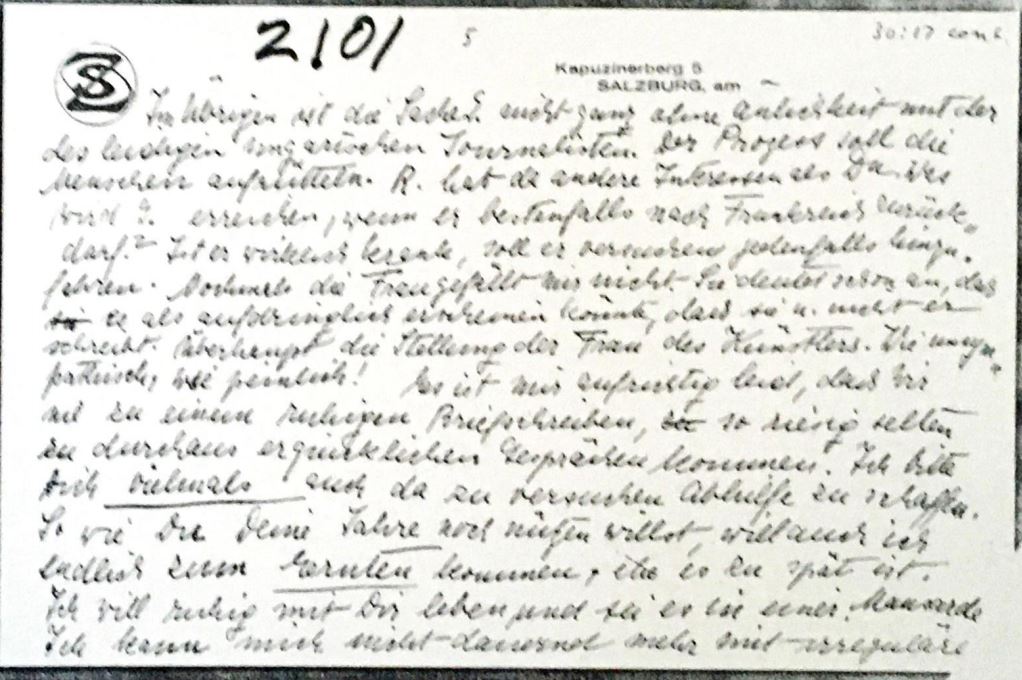 2101 5
Kapuzinerberg 5
SALZBURG, am
SZ
Im Übrigen ist die Sache E. nicht ganz ohne Änlichkeit mit der
des leidigen ungarischen Journalisten. Der Prozess soll die
Menschen aufrütteln. R. hat da andere Interessen als Du. Was
wird E. erreichen, wenn er bestenfalls nach Frankreich zurück-
darf? Ist er wirklich krank, soll er versuchen jedenfalls hinzu-
fahren. Nochmals die Frau gefällt mir nicht. Sie deutet schon an, das
es als aufdringlich erscheinen könnte, dass sie u. nicht er
schreibt. Überhaupt die Stellung der Frau des Künstlers. Wie unsym-
pathisch, wie peinlich! Es ist mir aufrichtig leid, dass wir
nie zu einem ruhigen Briefschreiben, so riesig selten
zu durchaus erquicklichen Gesprächen kommen. Ich bitte
Dich vielmals auch da zu versuchen Abhilfe zu schaffen.
So wie Du Deine Jahre noch nützen willst, will auch ich
endlich zum kommen, ehe es zu spät ist.
Ich will ruhig mit Dir leben und sei es in einer Mansarde
Ich kann mich nicht dauernd mehr mit irreguläre